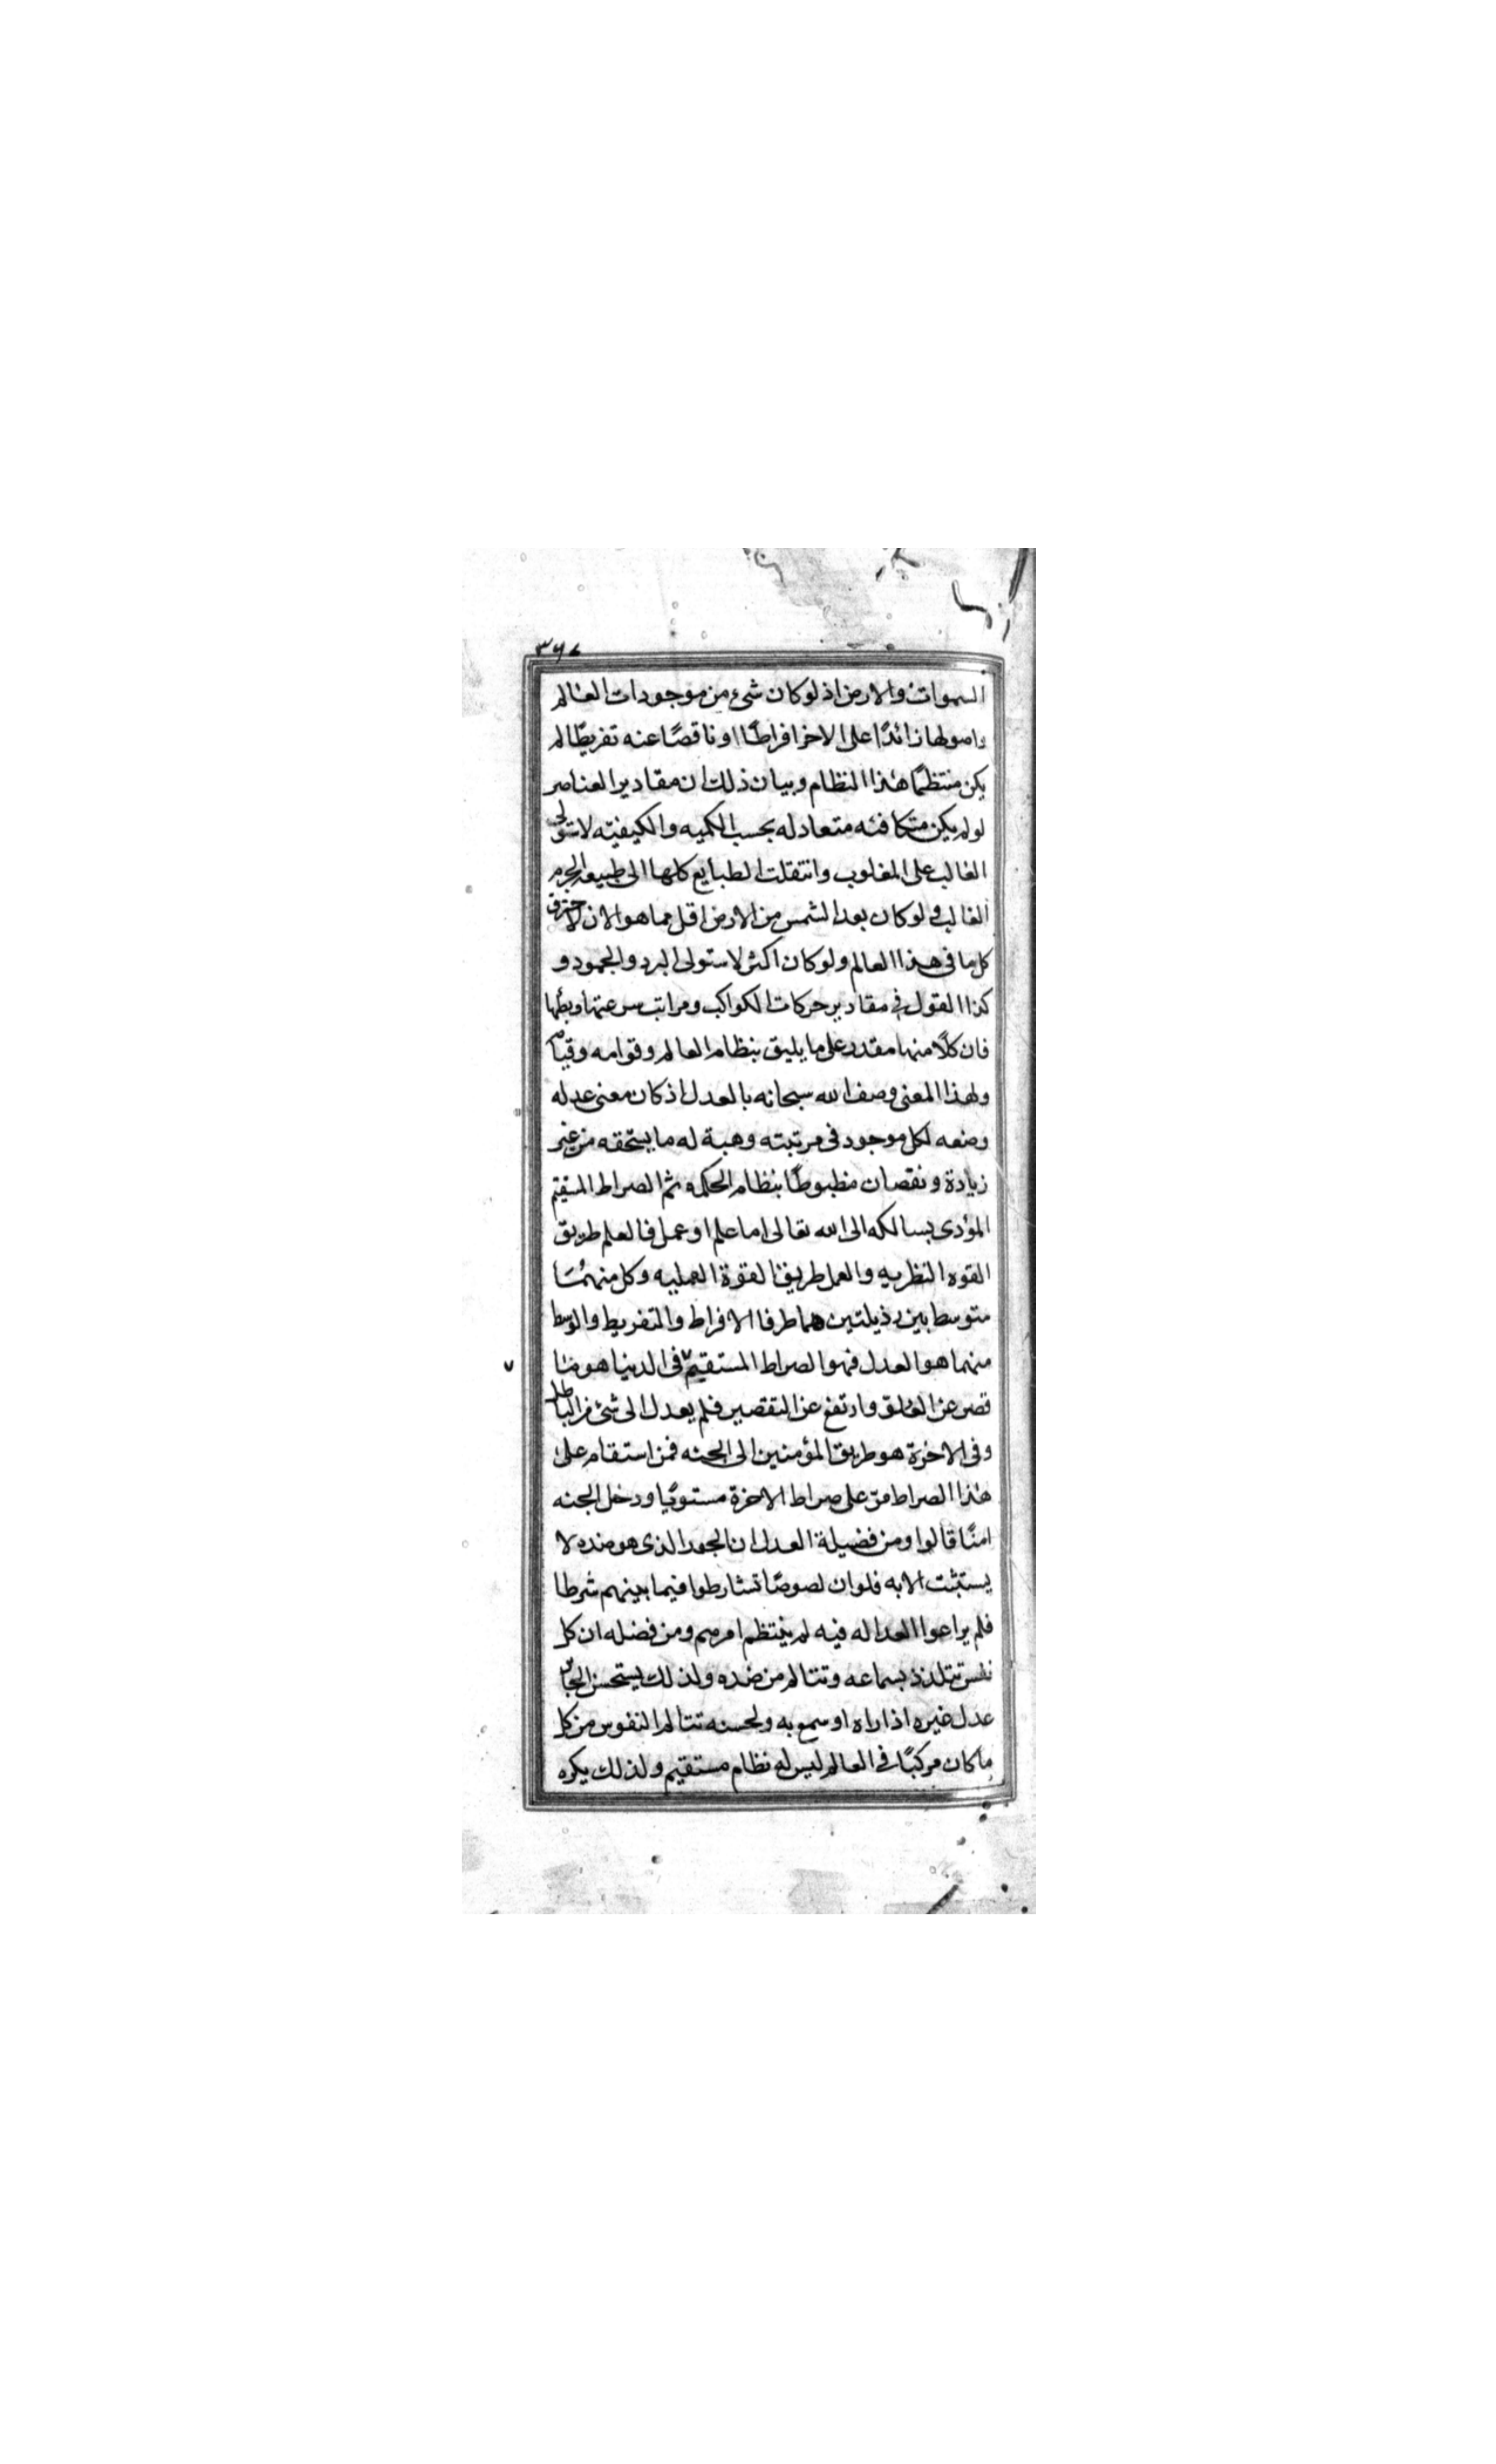 ٣٦٧
السموات والارض اذ لو كان شئ من موجودات العالم
واصولها زائدًا على الاخر افراطًا او ناقصًا عنه تفريطًا لم
يكن منتظمًا هذا النظام وبيان ذلك ان مقادير العناصر
لو لم يكن متكافئه متعادله بحسب الكميه والكيفيّه لاستولى
الغالب على المغلوب وانتقلت الطبايع كلها الى طبيعه الجرم
الغالب ولو كان بعد الشمس من الارض اقل مما هو الان لاحترق
كل ما فى هذا العالم ولو كان اكثر لاستولى البرد والجمود و
كذا القول فى مقادير حركات الكواكب ومراتب سرعتها وبطئها
فان كلًا منها مقدر على ما يليق بنظام العالم وقوامه وقيامه
ولهذا المعنى وصف الله سبحانه بالعدل اذ كان معنى عدله
وضعه لكل موجود فى مرتبته وهبة له ما يستحقه من غير
زيادة ونقصان مظبوطًا بنظام الحكمه ثم الصراط المستقيم
المؤدى بسالكه الى الله تعالى اما علم او عمل فالعلم طريق
القوه النظريه والعمل طريق القوة العمليه وكل منهما
متوسط بين رذيلتين هما طرفا الافراط والتفريط والوسط
منهما هو العدل فهو الصراط المستقيم فى الدنيا هو ما
قصر عن الغلق وارتفع عن التقصير فلم يعدل الى شئ من الباطل
وفى الاخرة هو طريق المؤمنين الى الجنه فمن استقام على
هذا الصراط مرّ على صراط الاخرة مستويًا ودخل الجنه
امنًا قالوا ومن فضيلة العدل ان الجور الذى هو ضده لا
يستثبت الا به فلو ان لصوصًا تشارطوا فيما بينهم شرطا
فلم يراعوا العداله فيه لم ينتظم امرهم ومن فضله ان كل
نفس تتلذذ بسماعه وتتالم من ضده ولذلك يستحسن الجائر
عدل غيره اذا راه او سمع به ولحسنه تتالم النفوس من كل
ما كان مركبًا فى العالم ليس له نظام مستقيم ولذلك يكره